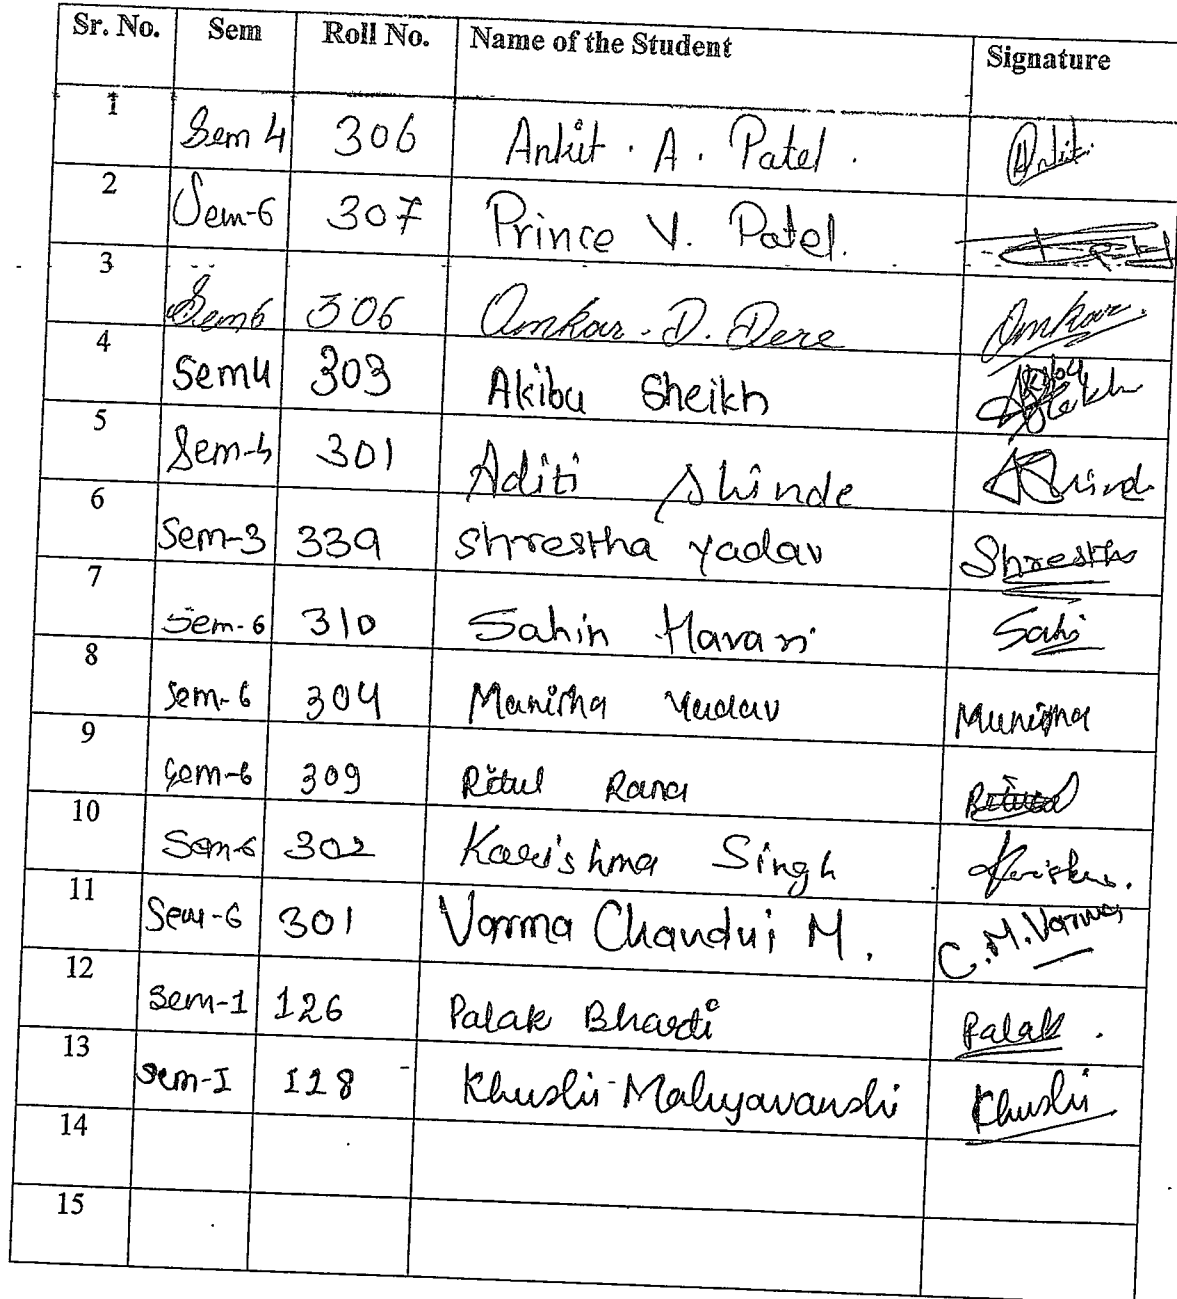 Sr. No. Sem Roll No. Name of the Student Signature
1 Sem 4 306 Ankit . A . Patel . Ankit
2 Sem-6 307 Prince V. Patel.
3 Sem6 306 Omkar - D. Dere Omkar.
4 Sem4 303 Akibu Sheikh
5 Sem-4 301 Aditi Shinde AShinde
6 Sem-3 339 Shrestha Yadav Shrestha
7 Sem-6 310 Sahin Havari Sahi
8 Sem-6 304 Manisha Yadav Manisha
9 Sem-6 309 Ritul Rana Ritul
10 Sem-6 302 Karishma Singh
11 Sem-6 301 Varma Chandni M. C.M.Varma
12 Sem-1 126 Palak Bharti Palak .
13 Sem-I 128 Khushi Maluyavanshi Khushi
14
15